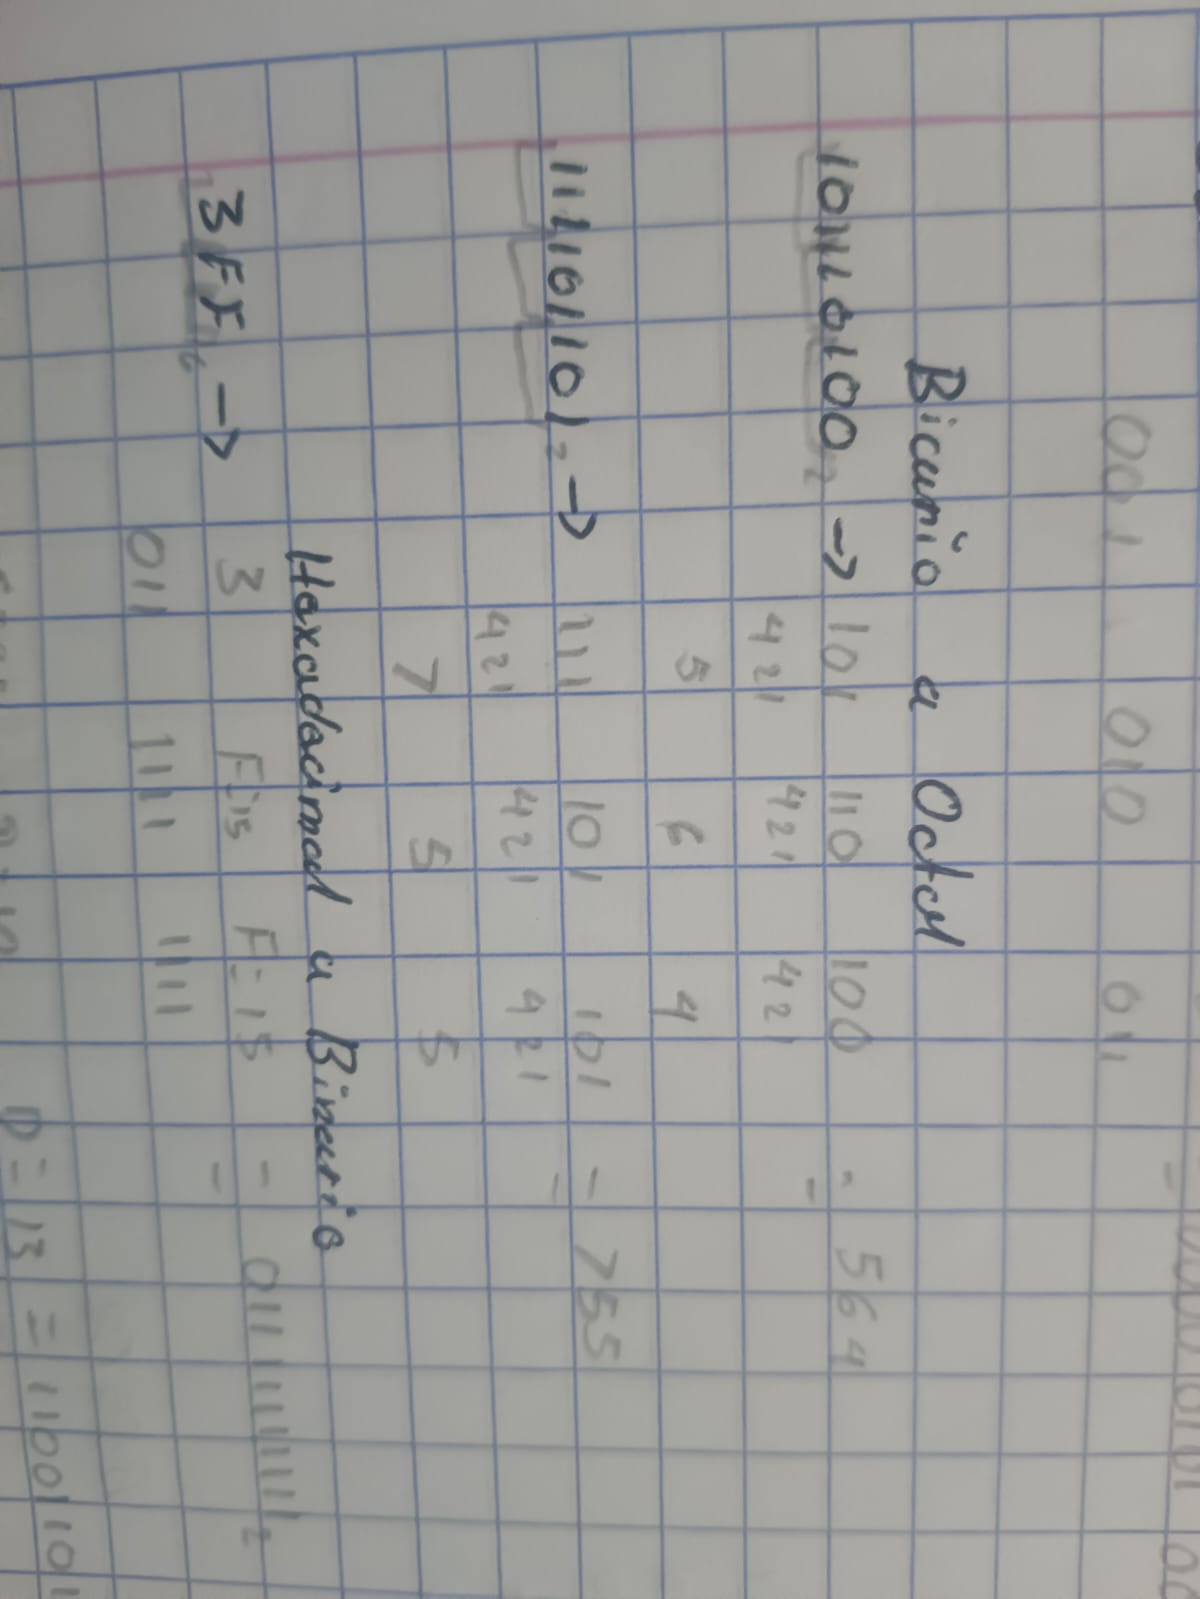 001 010 011
Binario a Octal
101110100₂ → 101 110 100 = 564
421 421 421 =
5 6 4
111101101₂ → 111 101 101 = 755
421 421 421 =
7 5 5
Hexadecimal a Binario
3FF₁₆ → 3 F=15 F=15 = 01111111111₂
011 1111 1111 =
D = 13 = 11001101